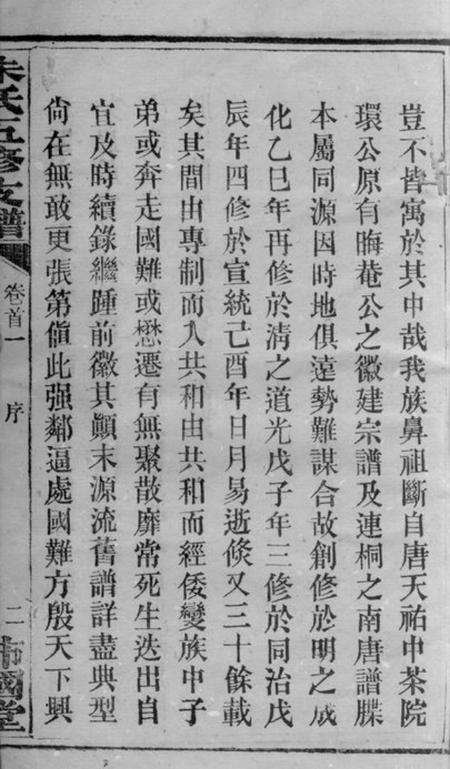 豈不皆寓於其中哉我族鼻祖斷自唐天祐中茶院
環公原有晦菴公之徽建宗譜及連桐之南唐譜牒
本屬同源因時地俱遠勢難謀合故創修於明之成
化乙巳年再修於清之道光戊子年三修於同治戊
辰年四修於宣統己酉年日月易逝倐又三十餘載
矣其間由專制而入共和由共和而經倭變族中子
弟或奔走國難或懋遷有無聚散靡常死生迭出自
宜及時續錄繼踵前徽其顚末源流舊譜詳盡典型
尙在無敢更張第值此强鄰逼處國難方殷天下興
朱氏五修支譜
卷首一
序
二
沛國堂